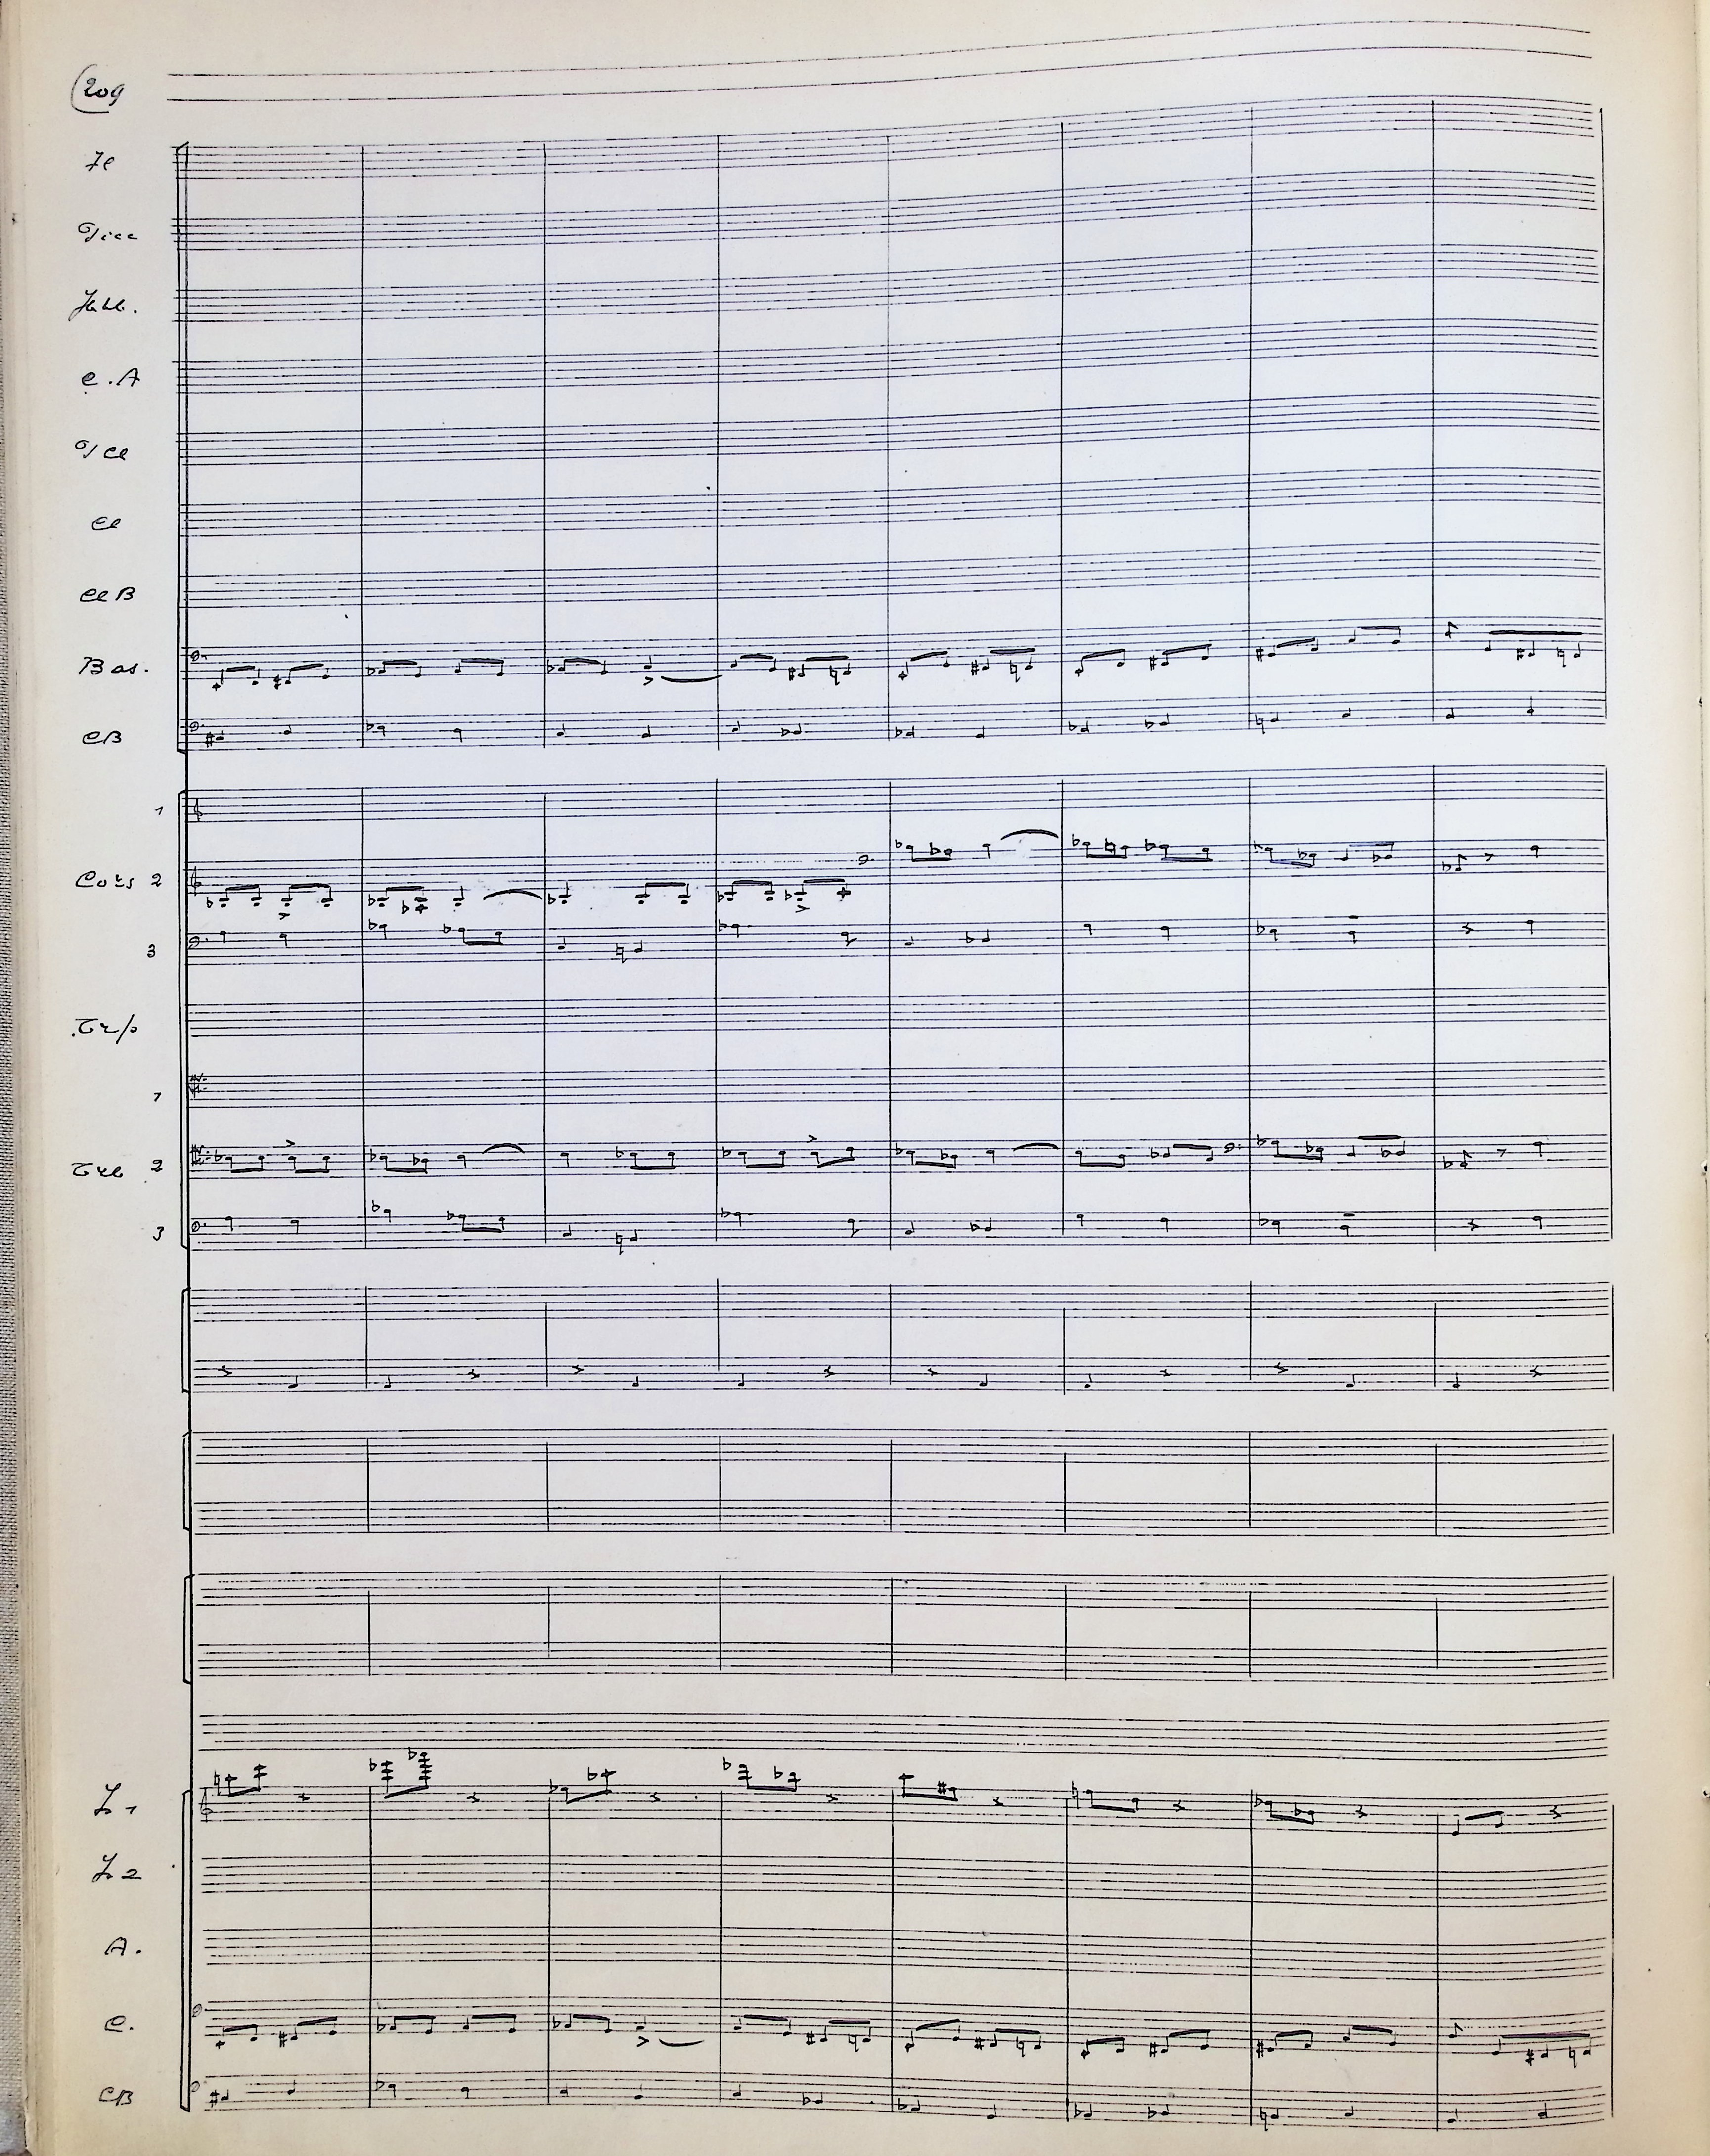 209
Fl
Picc
Htb.
C.A
PCl
Cl
ClB
Bas.
CB
1
Cors 2
3
Trp
1
Trb 2
3
A.
C.
CB